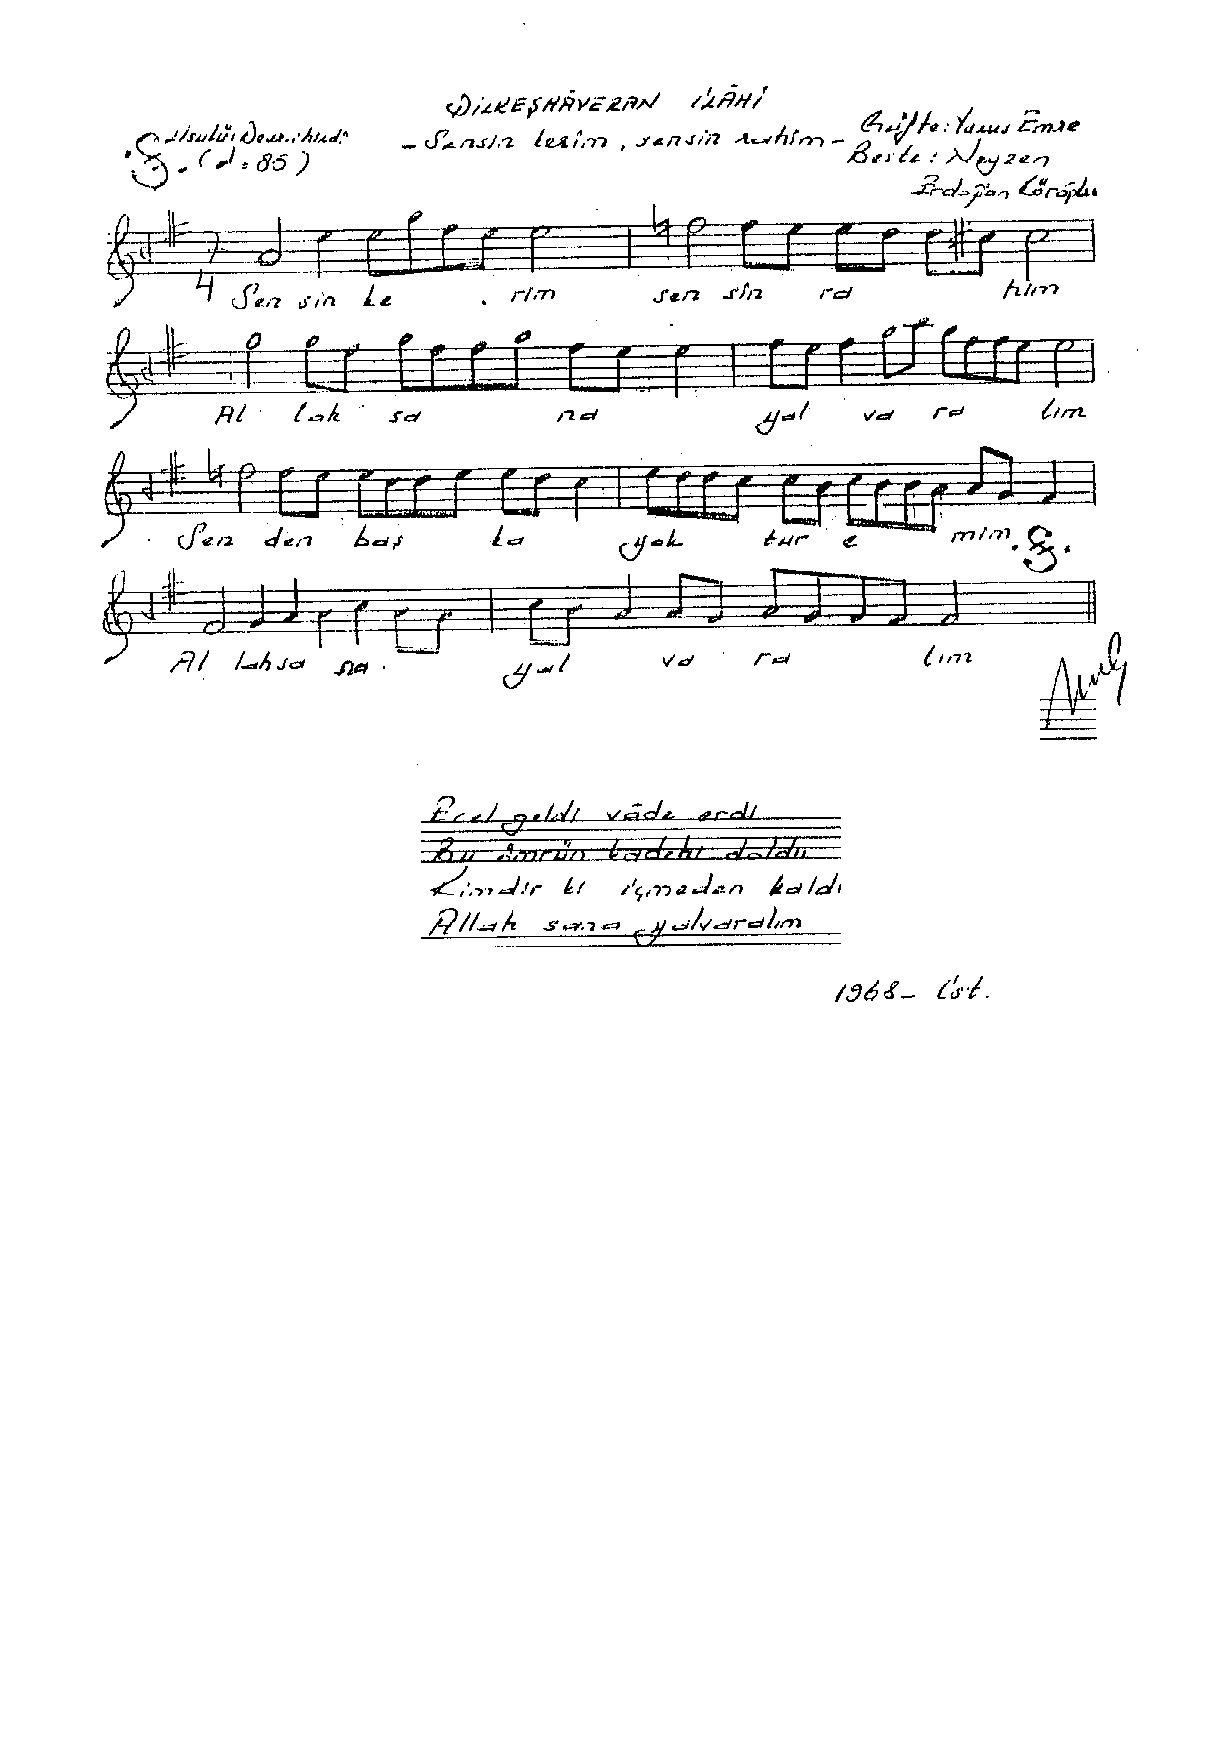 DİLKEŞHÂVERAN İLÂHİ
Usulü: Devr-i hindî
(♩ = 85)
- Sensin kerim, sensin rahim -
Güfte: Yunus Emre
Beste: Neyzen
Erdoğan Köroğlu
7
4
Sen sin ke rim sen sin ra him
Al lah sa na yal va ra lım
Sen den baş ka yok tur e mim
Al lah sa na yal va ra lım
Ecel geldi vâde erdi
Bu ömrün kadehi doldu
Kimdir ki içmeden kaldı
Allah sana yalvaralım
1968 - İst.